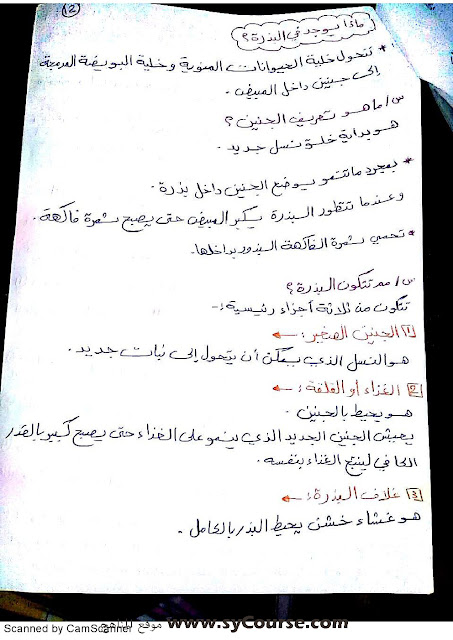 (2)
ماذا يوجد في البذرة؟
* تتحول خلية الحيوانات المنوية وخلية البويضة المدمجة
إلى جنين داخل المبيض.
س/ ما هو تعريف الجنين؟
هو بداية خلق نسل جديد.
* بمجرد ما تنمو يوضع الجنين داخل بذرة.
وعندما تتطور البذرة يكبر المبيض حتى يصبح ثمرة فاكهة.
* تحمي ثمرة الفاكهة البذور بداخلها.
س/ مم تتكون البذرة؟
تتكون من ثلاثة أجزاء رئيسية:-
[1] الجنين الصغير: ←
هو النسل الذي يمكن أن يتحول إلى نبات جديد.
[2] الغذاء أو الفلقة: ←
هو يحيط بالجنين.
يعيش الجنين الجديد الذي ينمو على الغذاء حتى يصبح كبير بالقدر
الكافي لينتج الغذاء بنفسه.
[3] غلاف البذرة: ←
هو غشاء خشن يحيط البذر بالكامل.
Scanned by CamScanner
موقع المناهج www.syCourse.com